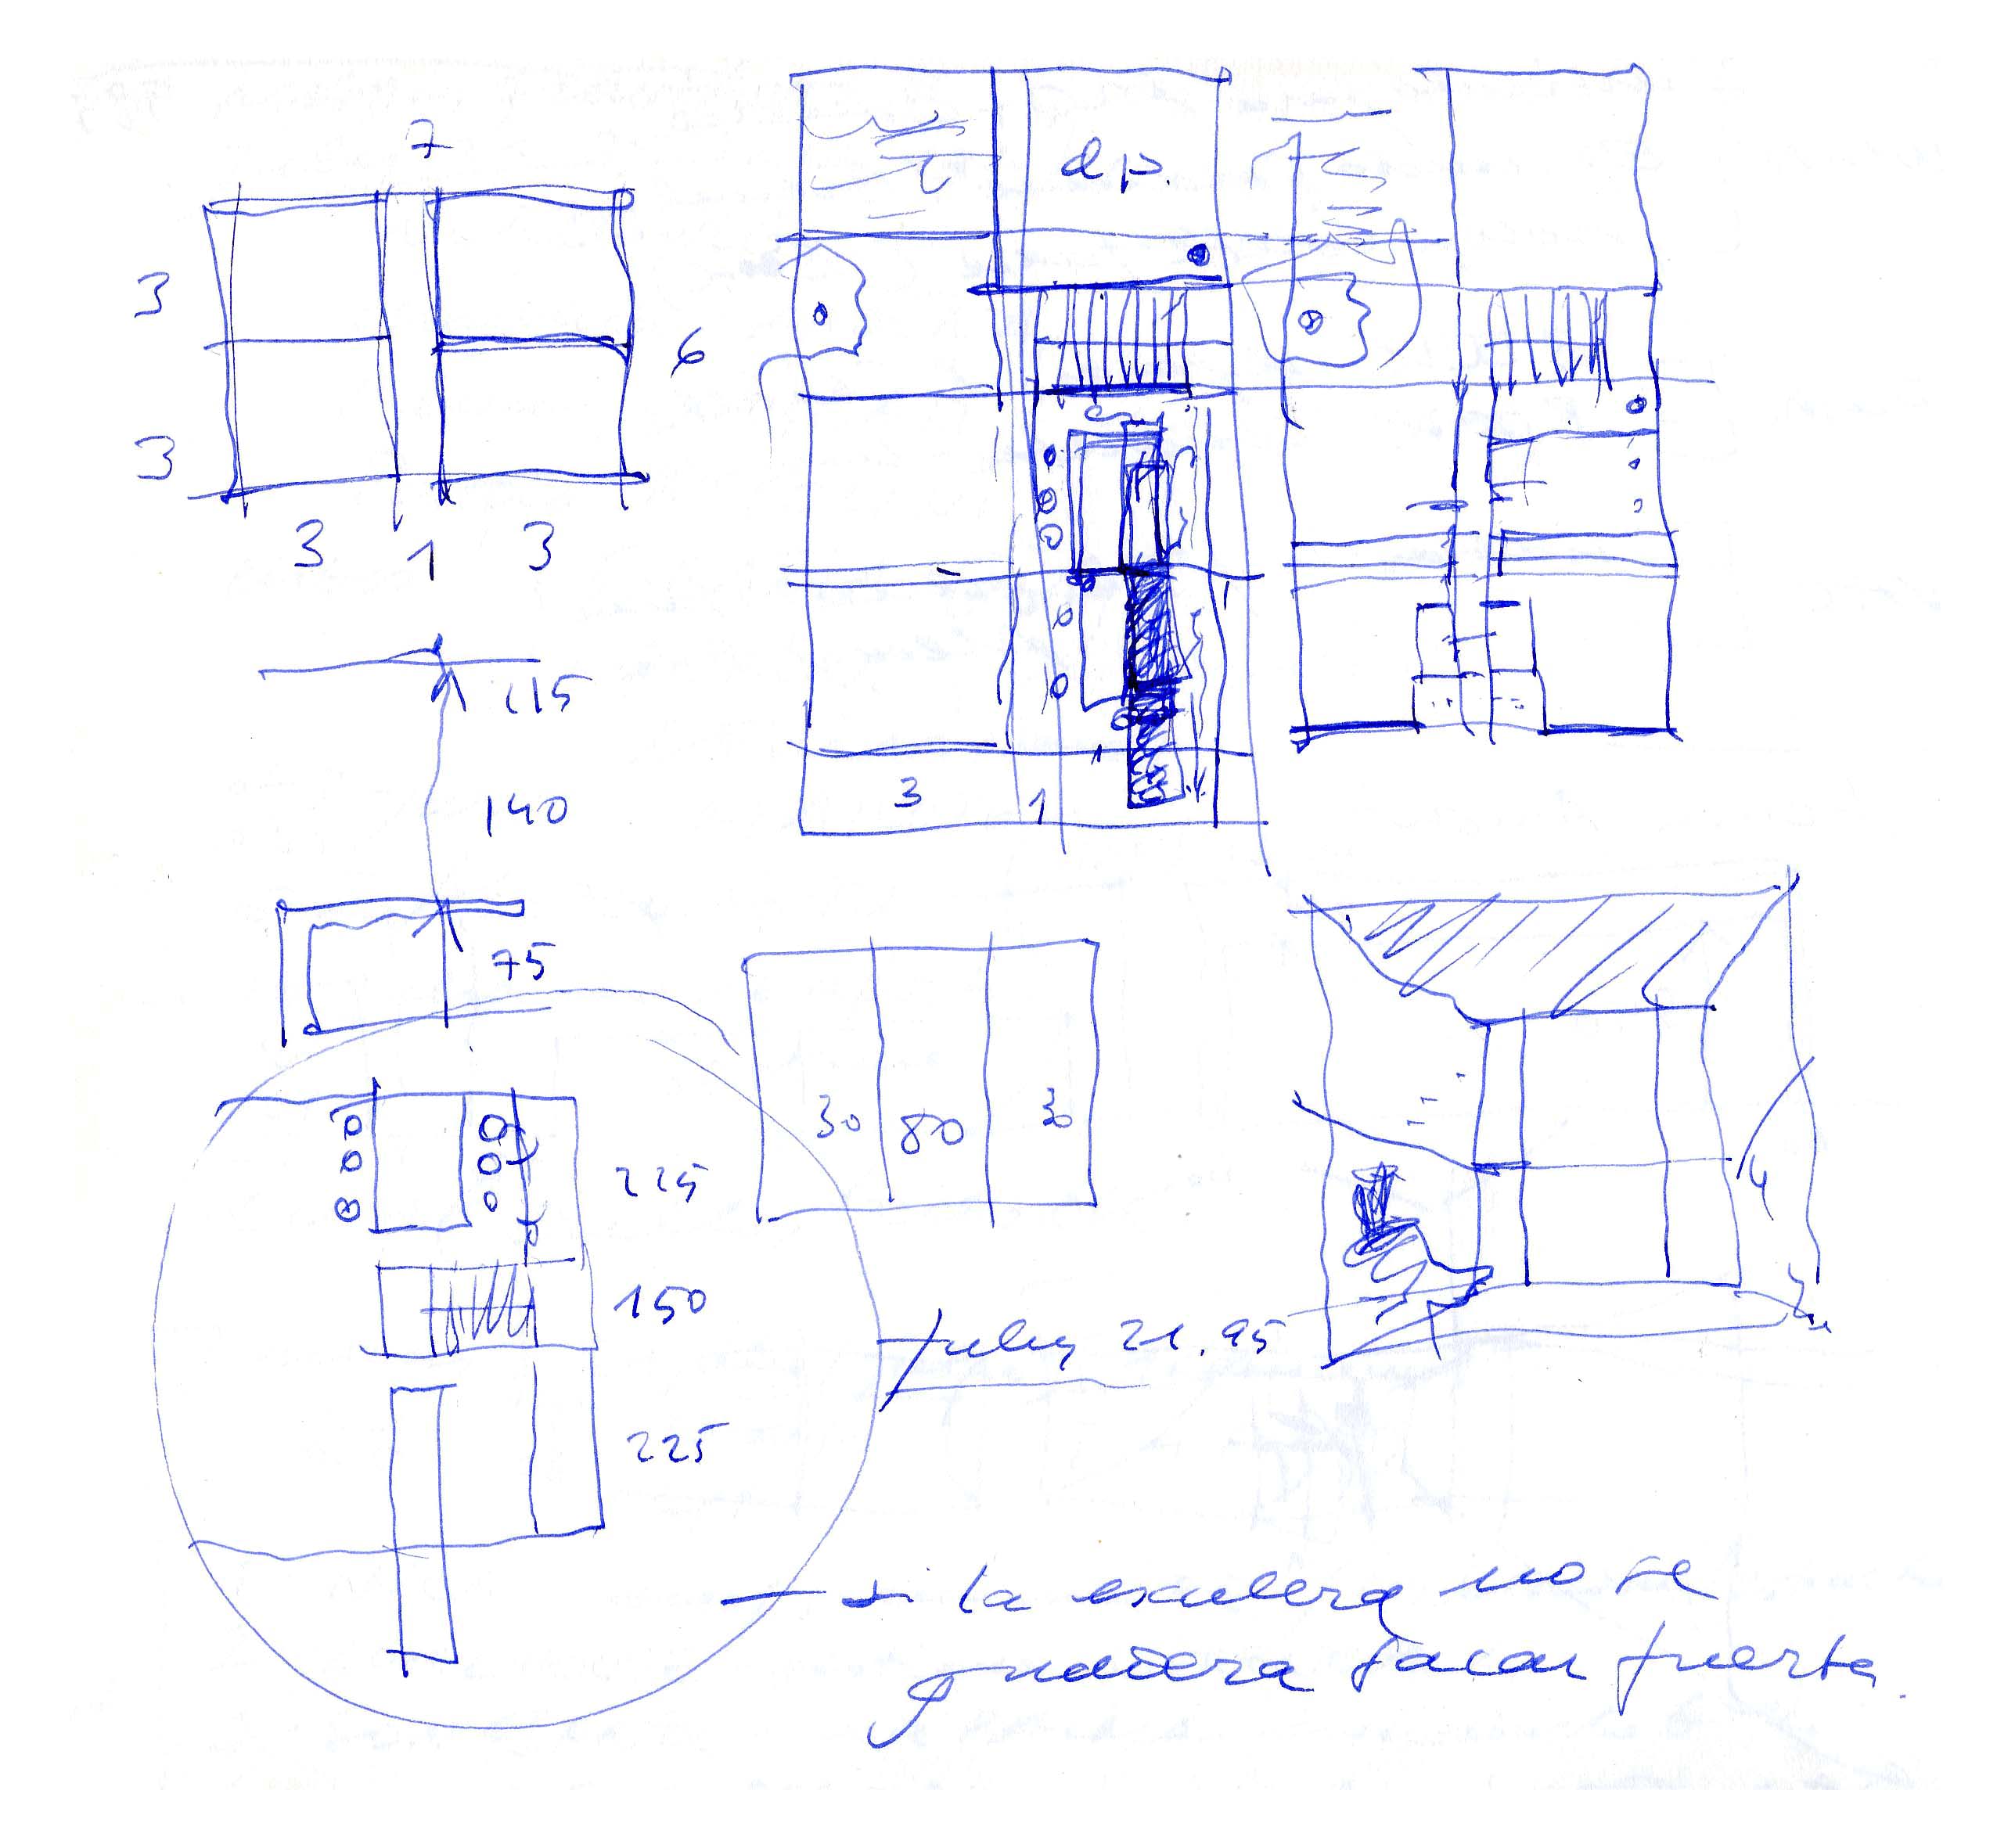 7
3
6
3
3 1 3
dp.
3 1
115
140
75
30 80 30
225
150
225
July 21.95
— si la escalera no se
pudiera sacar puerta.